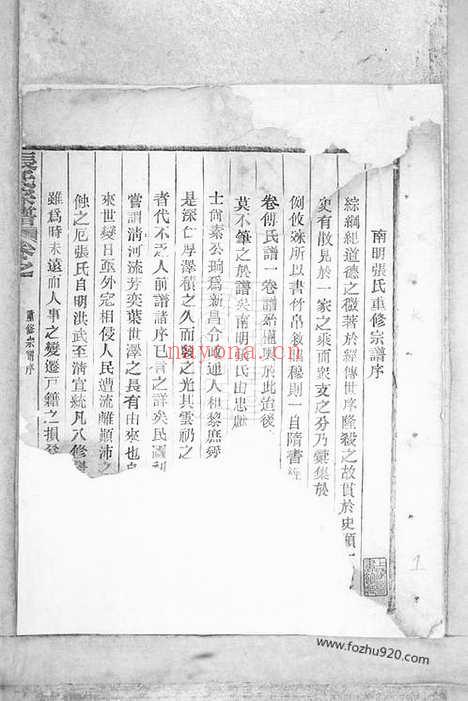 南明張氏重修宗譜序
綜綱紀道德之微著於經傳世序隆殺之故貫於史顧
史有散見於一家之乘而眾支之分乃彙集於
例攸殊所以書竹帛敘 穆則一自隋書經
卷傅氏譜一卷譜 於此迨後
莫不筆之於譜矣南明張氏由忠
士尚素公珦爲新昌令 連人相黎庶
是深仁厚澤積之久而 之光其雲礽之
者代不乏人前譜諸序已言之詳矣民國
嘗謂淸河流芳奕葉世澤之長有由來也
來世變日亟外寇相侵人民遭流離顚沛之
蝕之厄張氏自明洪武至淸宣統凡八修
雖爲時未遠而人事之變遷戸籍之損
張氏宗譜 卷之
重修宗譜序
1
nayona.cn
www.fozhu920.com